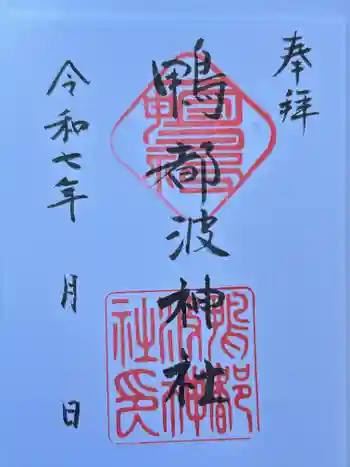 奉拝
鴨都波神社
令和七年 月 日
鴨都
波神
社印